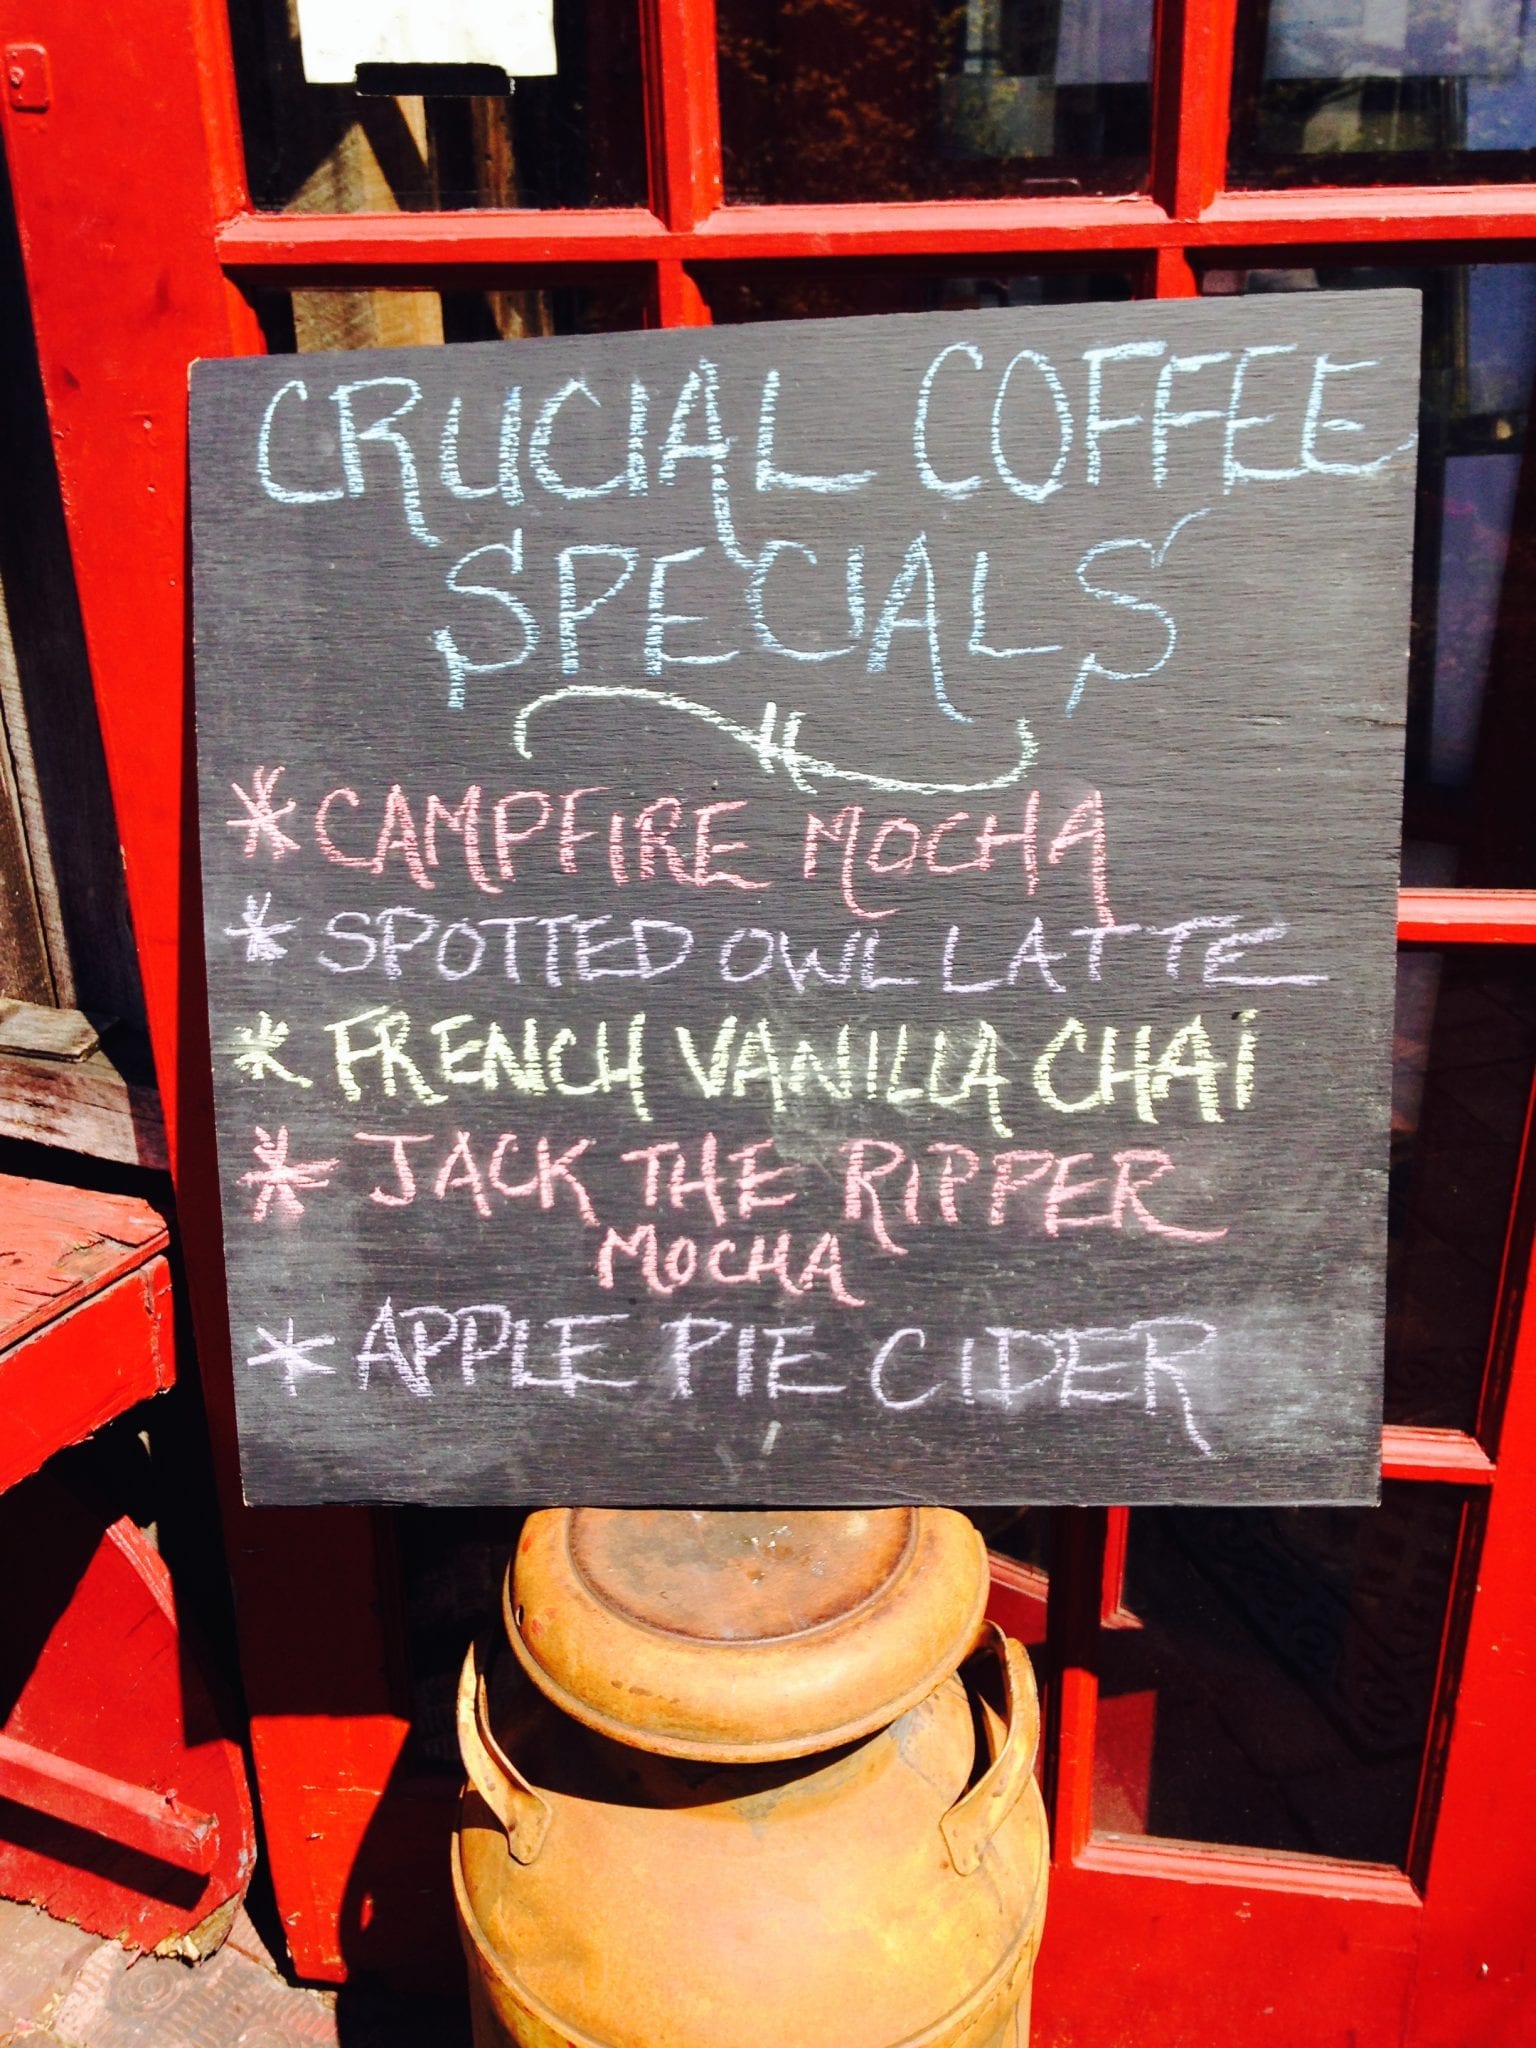 CRUCIAL COFFEE
SPECIALS
* CAMPFIRE MOCHA
* SPOTTED OWL LATTE
* FRENCH VANILLA CHAI
* JACK THE RIPPER
MOCHA
* APPLE PIE CIDER